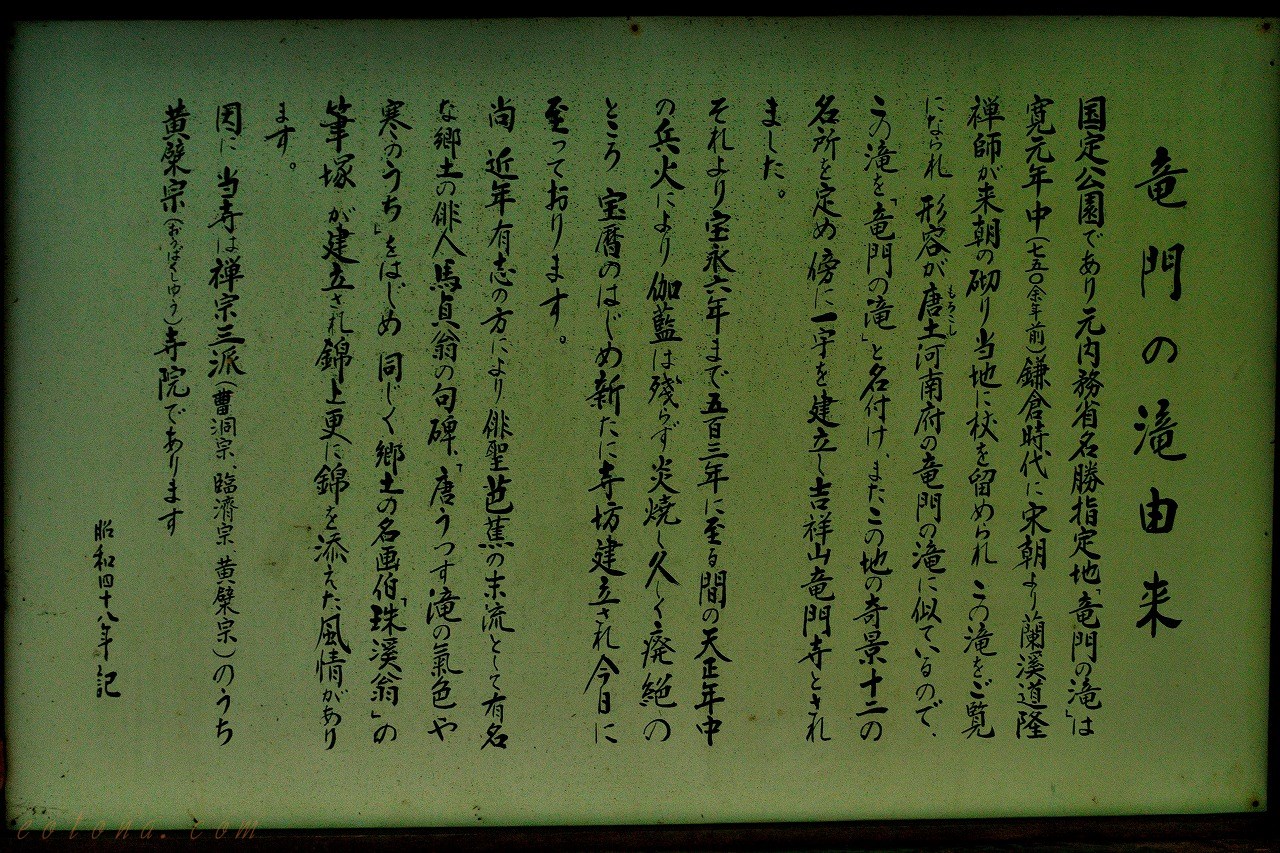 竜門の滝由来
国定公園であり元内務省名勝指定地「竜門の滝」は
寛元年中（七五〇余年前）鎌倉時代に宋朝より蘭溪道隆
禅師が来朝の砌り当地に杖を留められ この滝をご覧
になられ 形容が唐土河南府の竜門の滝に似ているので、
もろこし
この滝を「竜門の滝」と名付け、またこの地の奇景十二の
名所を定め 傍に一宇を建立し吉祥山竜門寺とされ
ました。
それより宝永六年まで五百三年に至る間の天正年中
の兵火により 伽藍は残らず炎焼し久しく廃絶の
ところ 宝暦のはじめ新たに寺坊建立され今日に
至っております。
尚 近年有志の方により 俳聖芭蕉の末流として有名
な郷土の俳人馬貞翁の句碑、「唐うつす滝の氣色や
寒さのうち」をはじめ 同じく郷土の名画伯「珠溪翁」の
筆塚 が建立され錦上更に錦を添えた風情があり
ます。
因に 当寺は禅宗三派（曹洞宗、臨濟宗、黄檗宗）のうち
黄檗宗（おうばくしゅう）寺院であります
昭和四十八年 記
eotona.com